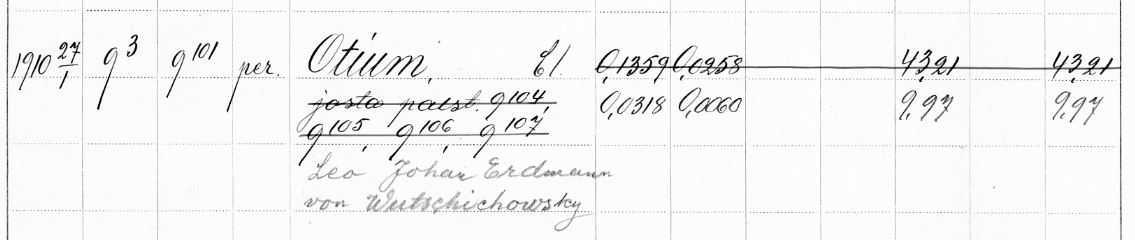 1910 27/1 9³ 9¹⁰¹ per. Otium, El. 0,1359 0,0258 43,21 43,21
josta paest. 9¹⁰⁴, 0,0318 0,0060 9,97 9,97
9¹⁰⁵, 9¹⁰⁶, 9¹⁰⁷
Leo Johan Erdmann
von Wutschichowsky